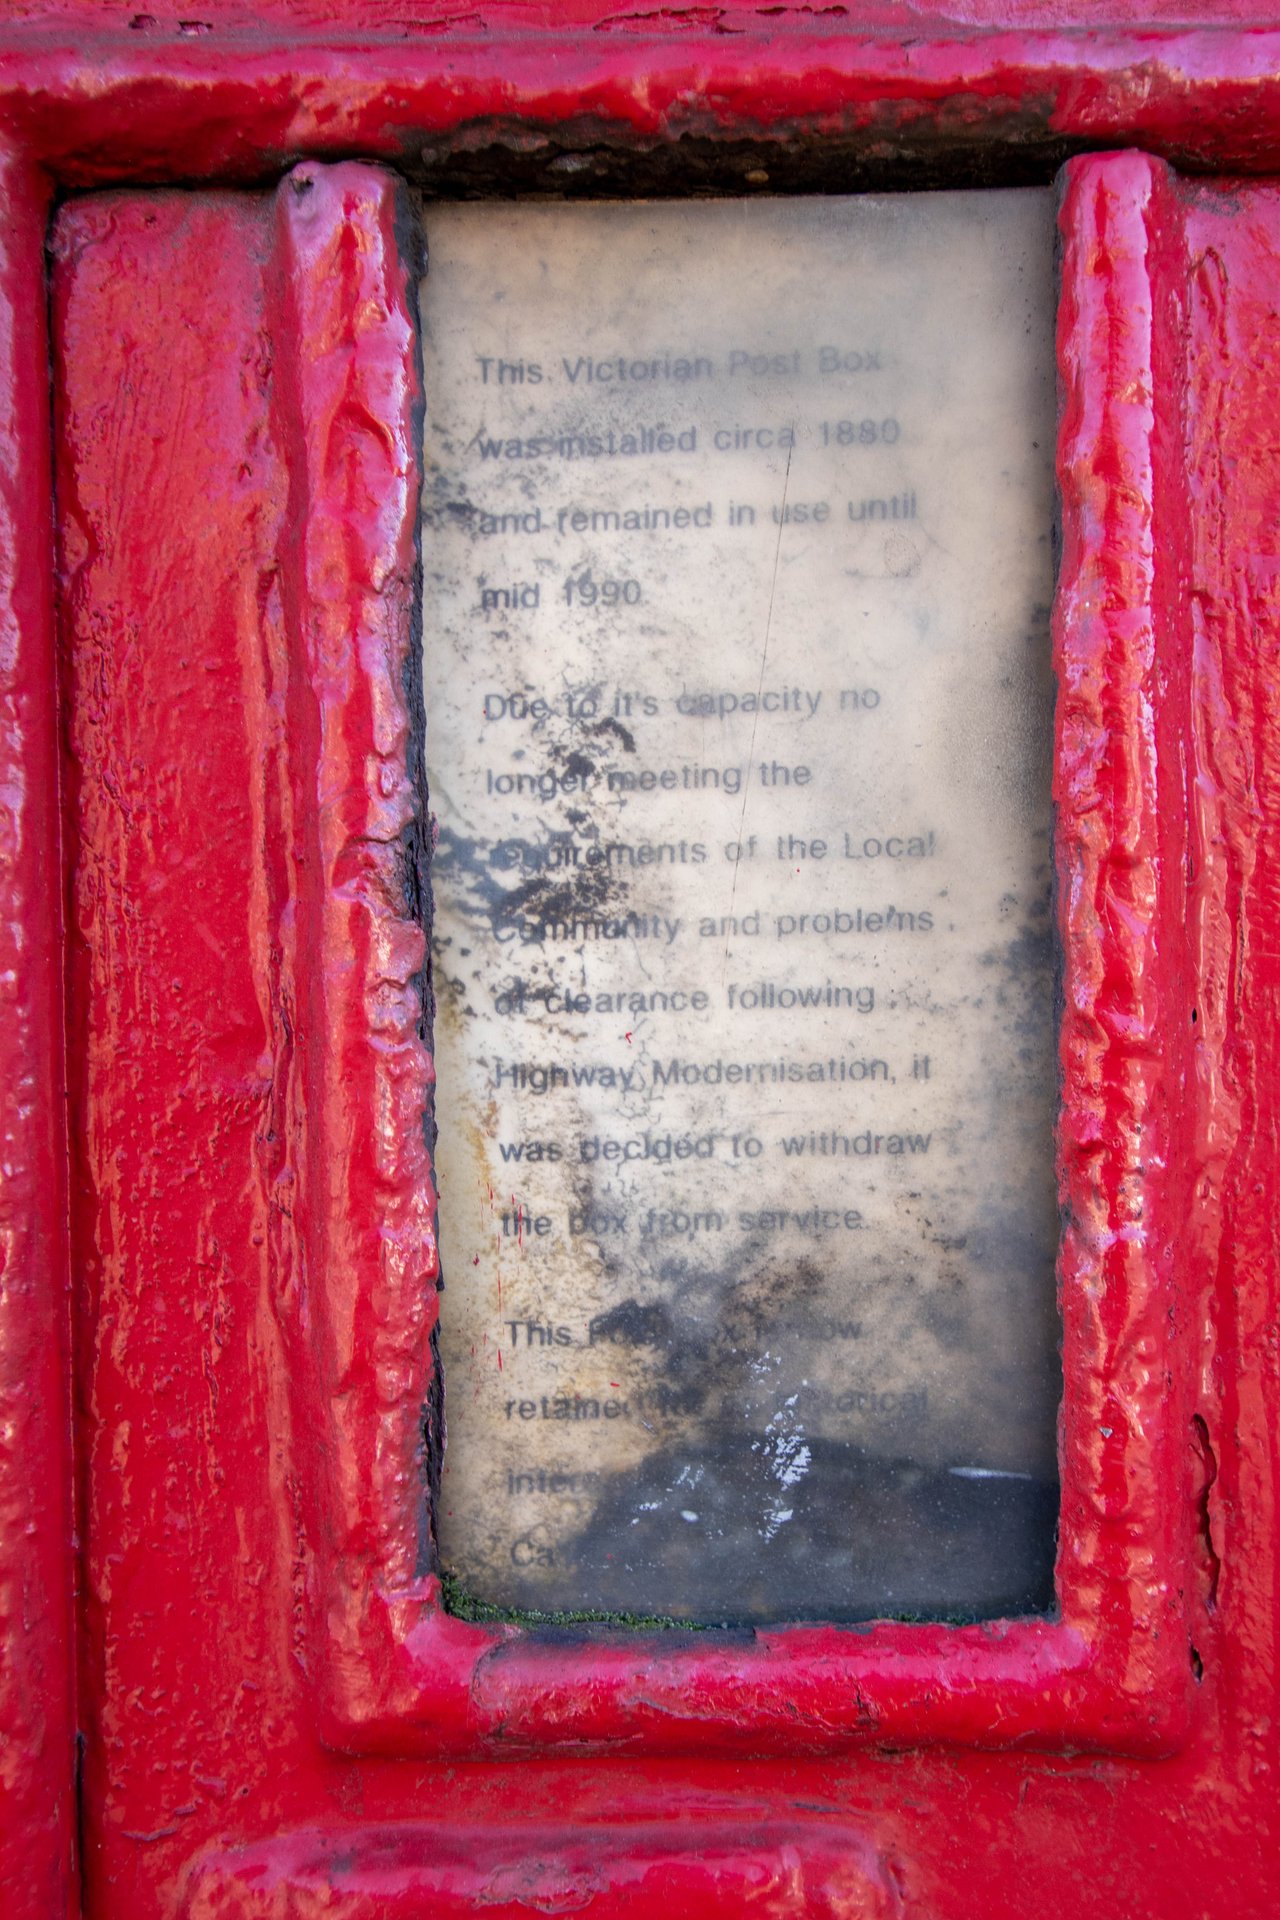 This Victorian Post Box
was installed circa 1880
and remained in use until
mid 1990.
Due to it's capacity no
longer meeting the
requirements of the Local
Community and problems
of clearance following
Highway Modernisation, it
was decided to withdraw
the box from service.
This Post Box is now
retained